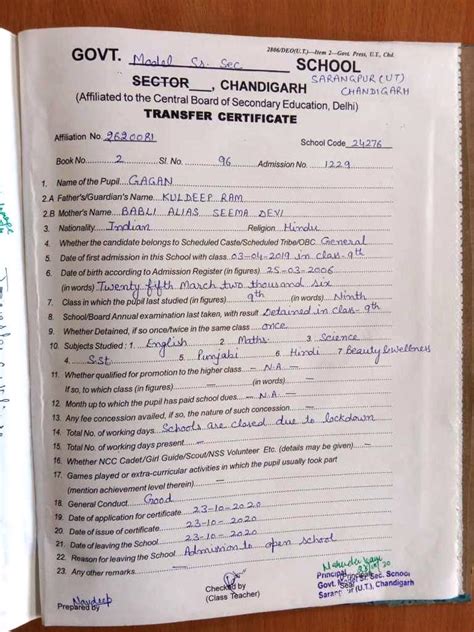 2806/DEO(U.T.)—Item 2—Govt. Press, U.T., Chd.
GOVT. Model Sr. Sec. SCHOOL
SECTOR , CHANDIGARH SARANGPUR (UT)
CHANDIGARH
(Affiliated to the Central Board of Secondary Education, Delhi)
TRANSFER CERTIFICATE
Affiliation No. 2620081 School Code 24276
Book No. 2 Sl. No. 96 Admission No. 1229
1. Name of the Pupil GAGAN
2.A Father's/Guardian's Name KULDEEP RAM
2.B Mother's Name BABLI ALIAS SEEMA DEVI
3. Nationality Indian Religion Hindu
4. Whether the candidate belongs to Scheduled Caste/Scheduled Tribe/OBC General
5. Date of first admission in this School with class 03-04-2019 in class-9th
6. Date of birth according to Admission Register (in figures) 25-03-2006
(in words) Twenty fifth March two thousand six
7. Class in which the pupil last studied (in figures) 9th (in words) Ninth
8. School/Board Annual examination last taken, with result Detained in class-9th
9. Whether Detained, if so once/twice in the same class once
10. Subjects Studied : 1. English 2. Maths 3. Science
4. S.St. 5. Punjabi 6. Hindi 7 Beauty & wellness
11. Whether qualified for promotion to the higher class N.A
If so, to which class (in figures) — (in words) —
12. Month up to which the pupil has paid school dues N.A
13. Any fee concession availed, if so, the nature of such concession —
14. Total No. of working days Schools are closed due to lockdown
15. Total No. of working days present —
16. Whether NCC Cadet/Girl Guide/Scout/NSS Volunteer Etc. (details may be given) —
17. Games played or extra-curricular activities in which the pupil usually took part
(mention achievement level therein) —
18. General Conduct Good
19. Date of application for certificate 23-10-2020
20. Date of issue of certificate 23-10-2020
21. Date of leaving the School 23-10-2020
22. Reason for leaving the School Admission to open school
23. Any other remarks —
Navdeep
Prepared by
Checked by
(Class Teacher)
Principal
Seal
Govt. Model Sr. Sec. School
Sarangpur (U.T.), Chandigarh